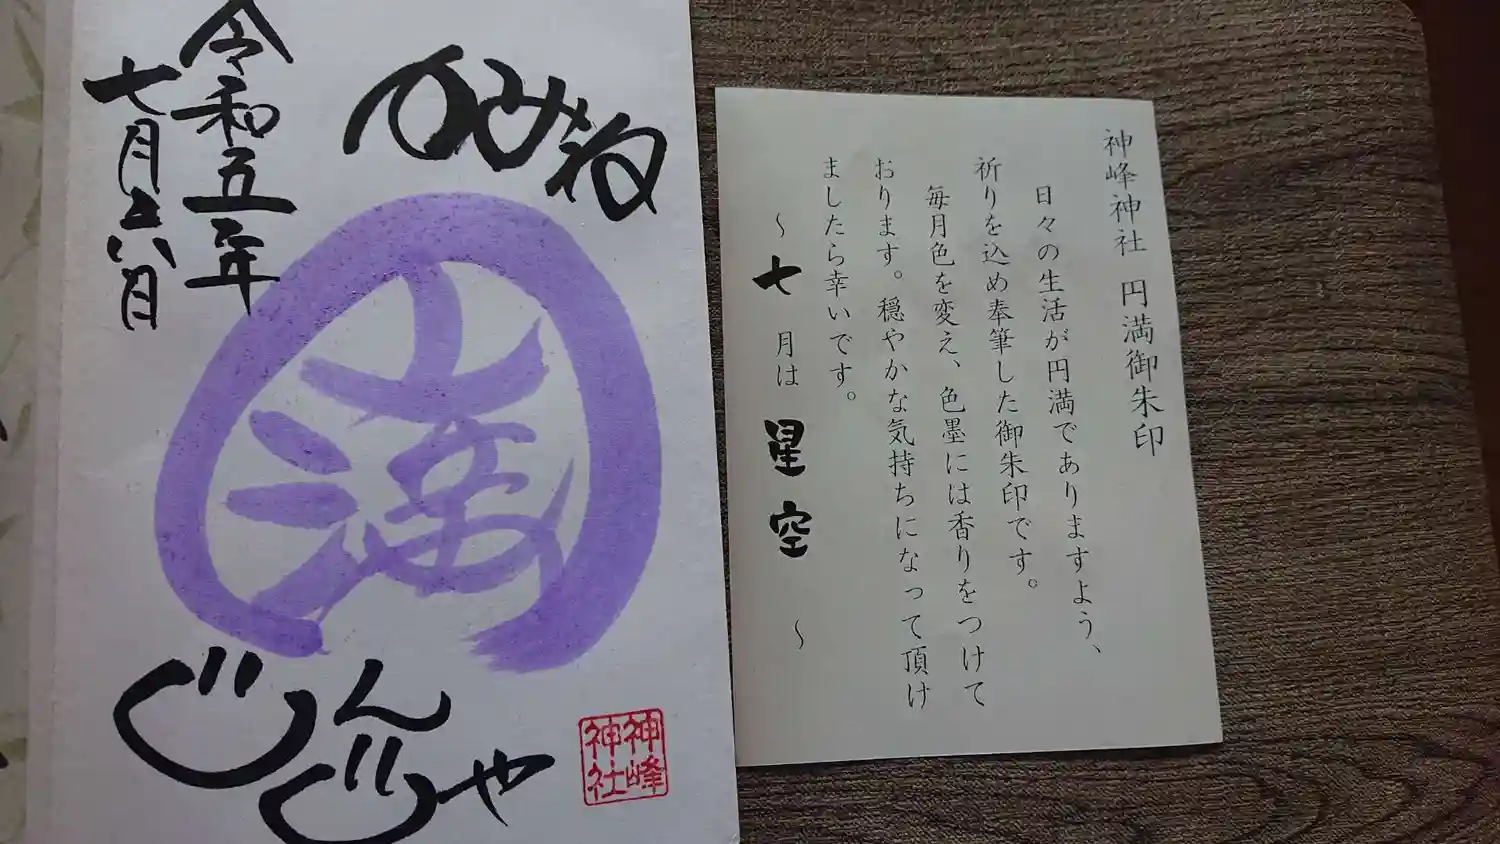 かみね
令和五年
七月十六日
満
じんじや
神峰
神社
神峰神社 円満御朱印
日々の生活が円満でありますよう、
祈りを込め奉筆した御朱印です。
毎月色を変え、色墨には香りをつけて
おります。穏やかな気持ちになって頂け
ましたら幸いです。
～七月は星空～